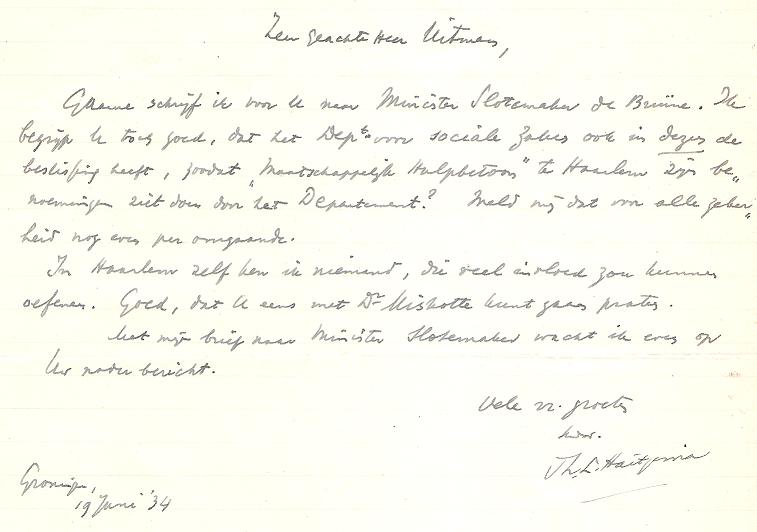 Zeer geachte Heer Uitman,
Gaarne schrijf ik voor U naar Minister Slotemaker de Bruïne. Ik
begrijp U toch goed, dat het Dept. voor sociale zaken ook in dezen de
beslissing heeft, zoodat "Maatschappelijk Hulpbetoon" te Haarlem zijn be„
noemingen ziet doen door het Departement? Meld mij dat voor alle zeker„
heid nog even per omgaande.
In Haarlem zelf ken ik niemand, die veel invloed zou kunnen
oefenen. Goed, dat U eens met Dr Miskotte kunt gaan praten.
Met mijn brief naar Minister Slotemaker wacht ik even op
Uw nader bericht.
Vele vr. groeten
Th. L. Haitjema
Groningen,
19 Juni '34